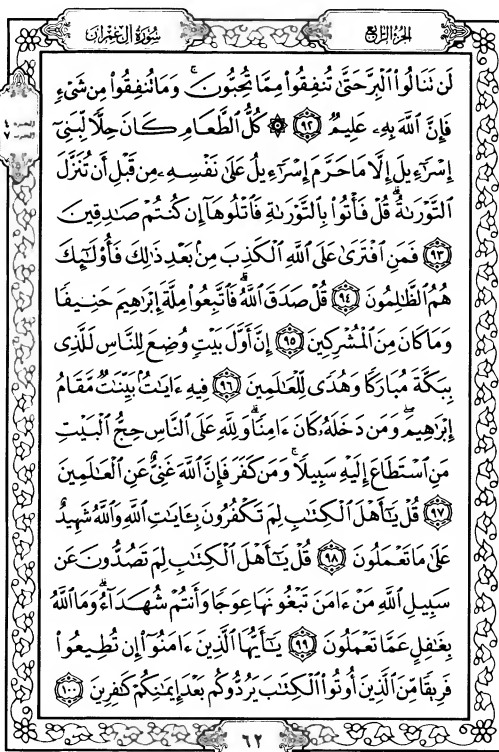 سُورَةُ آلِ عِمْرَانَ
الجُزءُ الرَّابِعُ
لَن نَنَالُوا۟ ٱلْبِرَّ حَتَّىٰ تُنفِقُوا۟ مِمَّا تُحِبُّونَ ۚ وَمَا تُنفِقُوا۟ مِن شَىْءٍ
فَإِنَّ ٱللَّهَ بِهِۦ عَلِيمٌ ﴿٩٢﴾ ۞ كُلُّ ٱلطَّعَامِ كَانَ حِلًّا لِّبَنِىٓ
إِسْرَٰٓءِيلَ إِلَّا مَا حَرَّمَ إِسْرَٰٓءِيلُ عَلَىٰ نَفْسِهِۦ مِن قَبْلِ أَن تُنَزَّلَ
ٱلتَّوْرَىٰةُ ۗ قُلْ فَأْتُوا۟ بِٱلتَّوْرَىٰةِ فَٱتْلُوهَآ إِن كُنتُمْ صَٰدِقِينَ
﴿٩٣﴾ فَمَنِ ٱفْتَرَىٰ عَلَى ٱللَّهِ ٱلْكَذِبَ مِنۢ بَعْدِ ذَٰلِكَ فَأُو۟لَٰٓئِكَ
هُمُ ٱلظَّٰلِمُونَ ﴿٩٤﴾ قُلْ صَدَقَ ٱللَّهُ ۗ فَٱتَّبِعُوا۟ مِلَّةَ إِبْرَٰهِيمَ حَنِيفًا
وَمَا كَانَ مِنَ ٱلْمُشْرِكِينَ ﴿٩٥﴾ إِنَّ أَوَّلَ بَيْتٍ وُضِعَ لِلنَّاسِ لَلَّذِى
بِبَكَّةَ مُبَارَكًا وَهُدًى لِّلْعَٰلَمِينَ ﴿٩٦﴾ فِيهِ ءَايَٰتٌۢ بَيِّنَٰتٌ مَّقَامُ
إِبْرَٰهِيمَ ۖ وَمَن دَخَلَهُۥ كَانَ ءَامِنًا ۗ وَلِلَّهِ عَلَى ٱلنَّاسِ حِجُّ ٱلْبَيْتِ
مَنِ ٱسْتَطَاعَ إِلَيْهِ سَبِيلًا ۚ وَمَن كَفَرَ فَإِنَّ ٱللَّهَ غَنِىٌّ عَنِ ٱلْعَٰلَمِينَ
﴿٩٧﴾ قُلْ يَٰٓأَهْلَ ٱلْكِتَٰبِ لِمَ تَكْفُرُونَ بِـَٔايَٰتِ ٱللَّهِ وَٱللَّهُ شَهِيدٌ
عَلَىٰ مَا تَعْمَلُونَ ﴿٩٨﴾ قُلْ يَٰٓأَهْلَ ٱلْكِتَٰبِ لِمَ تَصُدُّونَ عَن
سَبِيلِ ٱللَّهِ مَنْ ءَامَنَ تَبْغُونَهَا عِوَجًا وَأَنتُمْ شُهَدَآءُ ۗ وَمَا ٱللَّهُ
بِغَٰفِلٍ عَمَّا تَعْمَلُونَ ﴿٩٩﴾ يَٰٓأَيُّهَا ٱلَّذِينَ ءَامَنُوٓا۟ إِن تُطِيعُوا۟
فَرِيقًا مِّنَ ٱلَّذِينَ أُوتُوا۟ ٱلْكِتَٰبَ يَرُدُّوكُم بَعْدَ إِيمَٰنِكُمْ كَٰفِرِينَ ﴿١٠٠﴾
٦٢